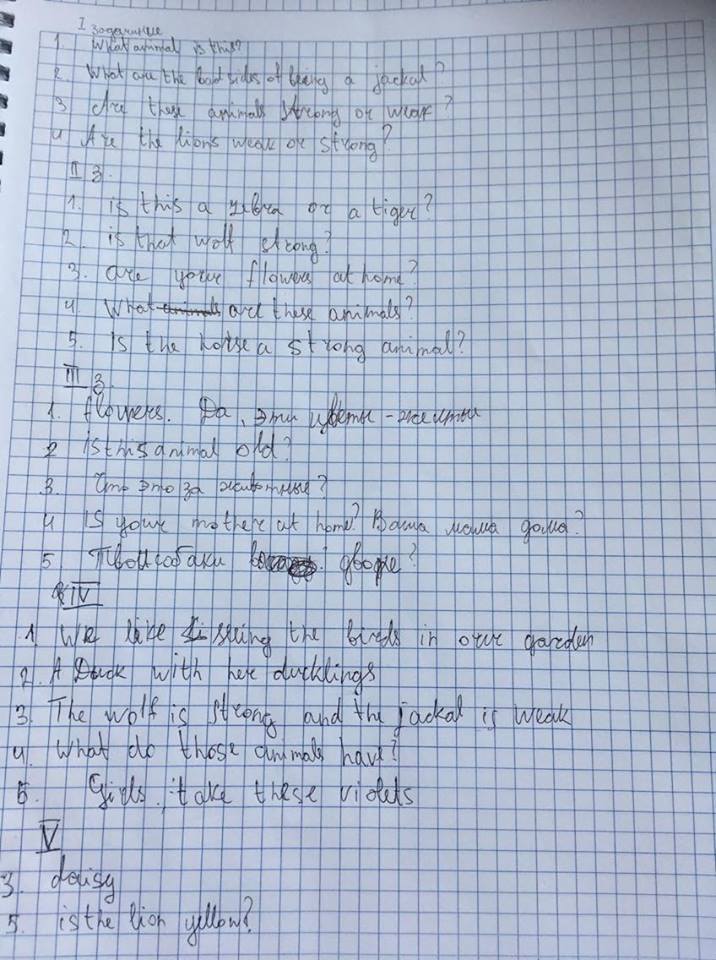 I задание
1. What animal is this?
2. What are the bad sides of being a jackal?
3 Are these animals strong or weak?
4 Are the lions weak or strong?
II з.
1. is this a zebra or a tiger?
2. is that wolf strong?
3. are your flowers at home?
4. What animals are these animals?
5. Is the horse a strong animal?
III з.
1. flowers. Да, эти цветы - желтые
2 is this animal old?
3. Что это за животные?
4 Is your mother at home? Ваша мама дома?
5 Твои собаки во дворе?
IV
1 We like seeing the birds in our garden
2. A Duck with her ducklings
3. The wolf is strong and the jackal is weak
4. What do those animals have?
5. Girls, take these violets
V
3. daisy
5. is the lion yellow?